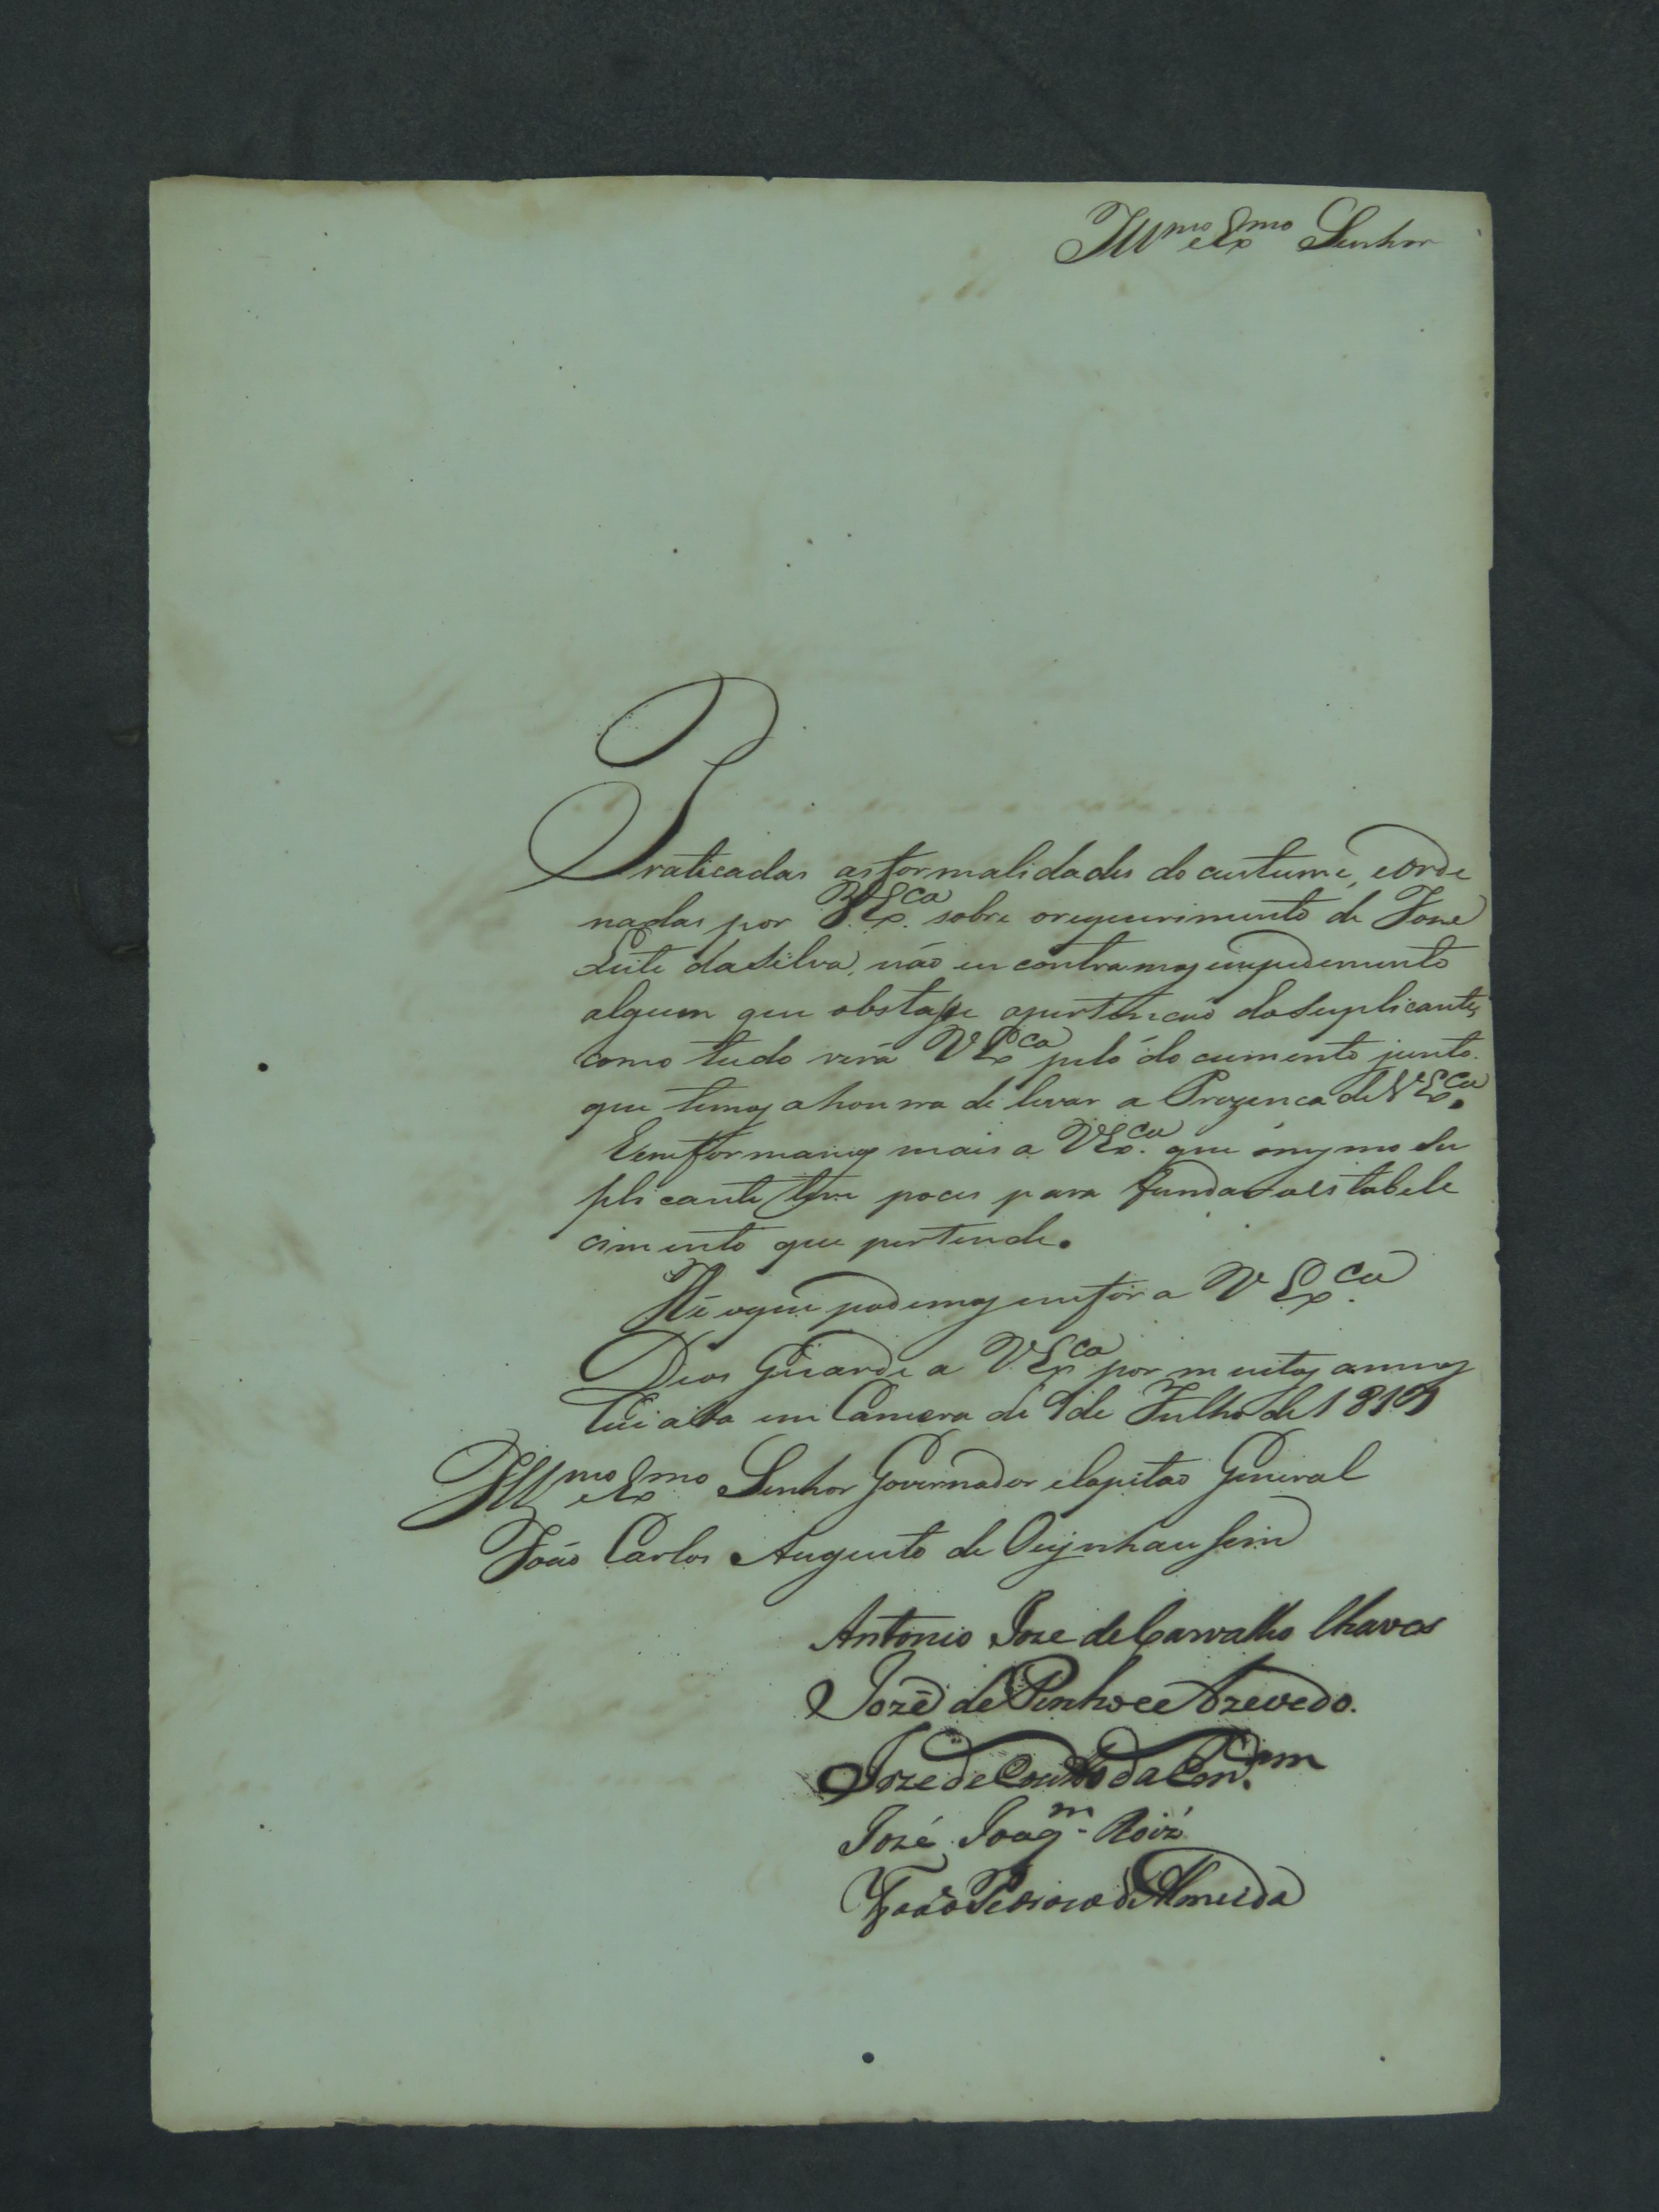 Illmo e Exmo Senhor
Praticadas as formalidades do custume, eorde
nadas por V. Exca. sobre orequerimento de Joze
Leite daSilva, não encontramos empedemento
algum que obstasse apertencaõ doSuplicante,
como tudo verá V Exca pelo documento junto.
que temos ahonrra de levar a Prezenca de V Exca.
Eemformamos mais a V Exca. que omesmo Su
plicante tem poces para fundar oestabele
cimento que pertende.
He oque podemos emfor a V Exca.
Deos Guarde a V. Exca por muitos annos
Cuiaba em Camera de 9 de Julho de 1819
Illmo e Exmo Senhor Governador eCapitaõ General
João Carlos Augusto de Oeynhausem
Antonio Joze de Carvalho Chaves
Jozé de Pinho e Azevedo.
Joze de Couto da Encm
José Joaqm. Roiz
João Pedroso de Almeida